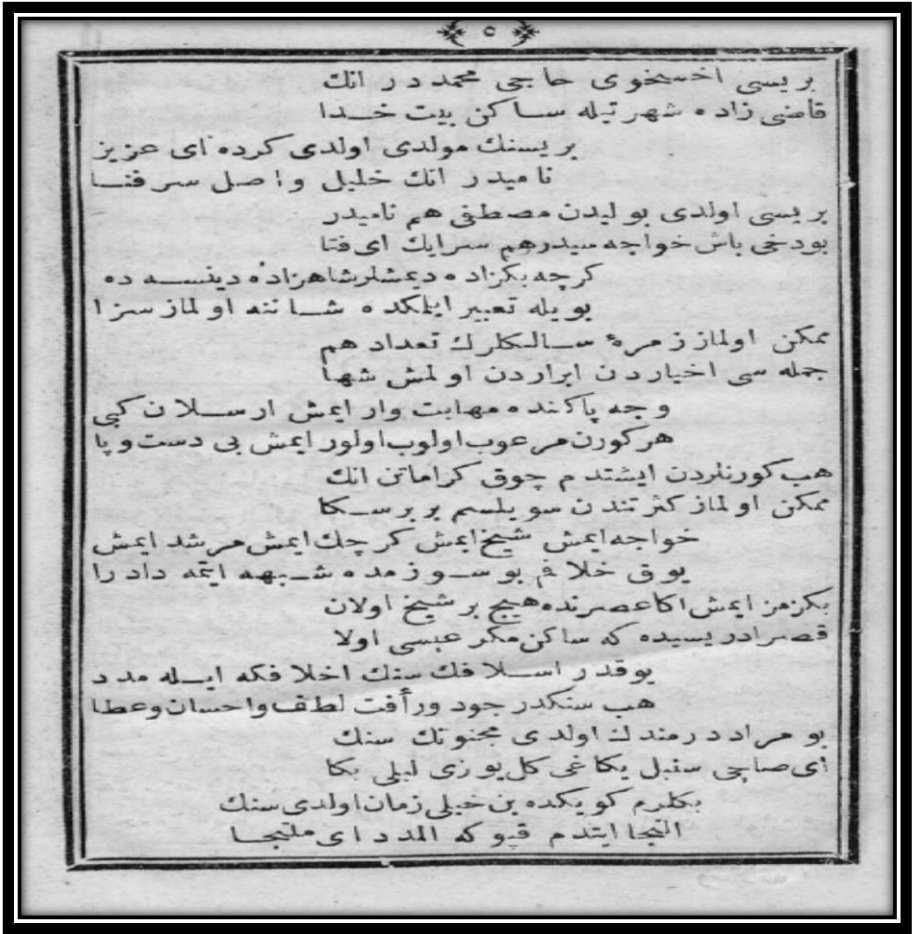 ٥
بریسی اخسخوی حاجی محمددر انك
قاضی زاده شهر تیله ساکن بیت خدا
بریسنك مولدی اولدی کرده ای عزیز
نامیدر انك خلیل واصل سر فنا
بریسی اولدی بولیدن مصطفی هم نامیدر
بودخی باش خواجه سیدرهم سرایك ای فتا
کرچه بکزاده دیمشلر شاهزاده دینسه ده
بویله تعبیر ایلمکده شاننه اولماز سزا
ممکن اولماز زمرهٔ سالکلرك تعداد هم
جمله سی اخیاردن ابراردن اولمش شها
وجه پاکنده مهابت وار ایمش ارسلان کبی
هرکورن مرعوب اولوب اولور ایمش بی دست و پا
هب کورنلردن ایشتدم چوق کراماتن انك
ممکن اولماز کثرتندن سویلسم بر بر سکا
خواجه ایمش شیخ ایمش کرچك ایمش مرشد ایمش
یوق خلافم بو سوزمده شبهه ایتمه دادرا
بکزمز ایمش اکا عصرنده هیچ بر شیخ اولان
قصر ادریسیده که ساکن مکر عیسی اولا
بوقدر اسلافك سنك اخلافکه ایله مدد
هب سنکدر جود ورأفت لطف واحسان وعطا
بو مراد دردمندك اولدی مجنونك سنك
ای صاچی سنبل یکاغی کل یوزی لیلی بکا
بکلرم کویکده بن خیلی زمان اولدی سنك
التجا ایتدم قپوکه المدد ای ملتجا